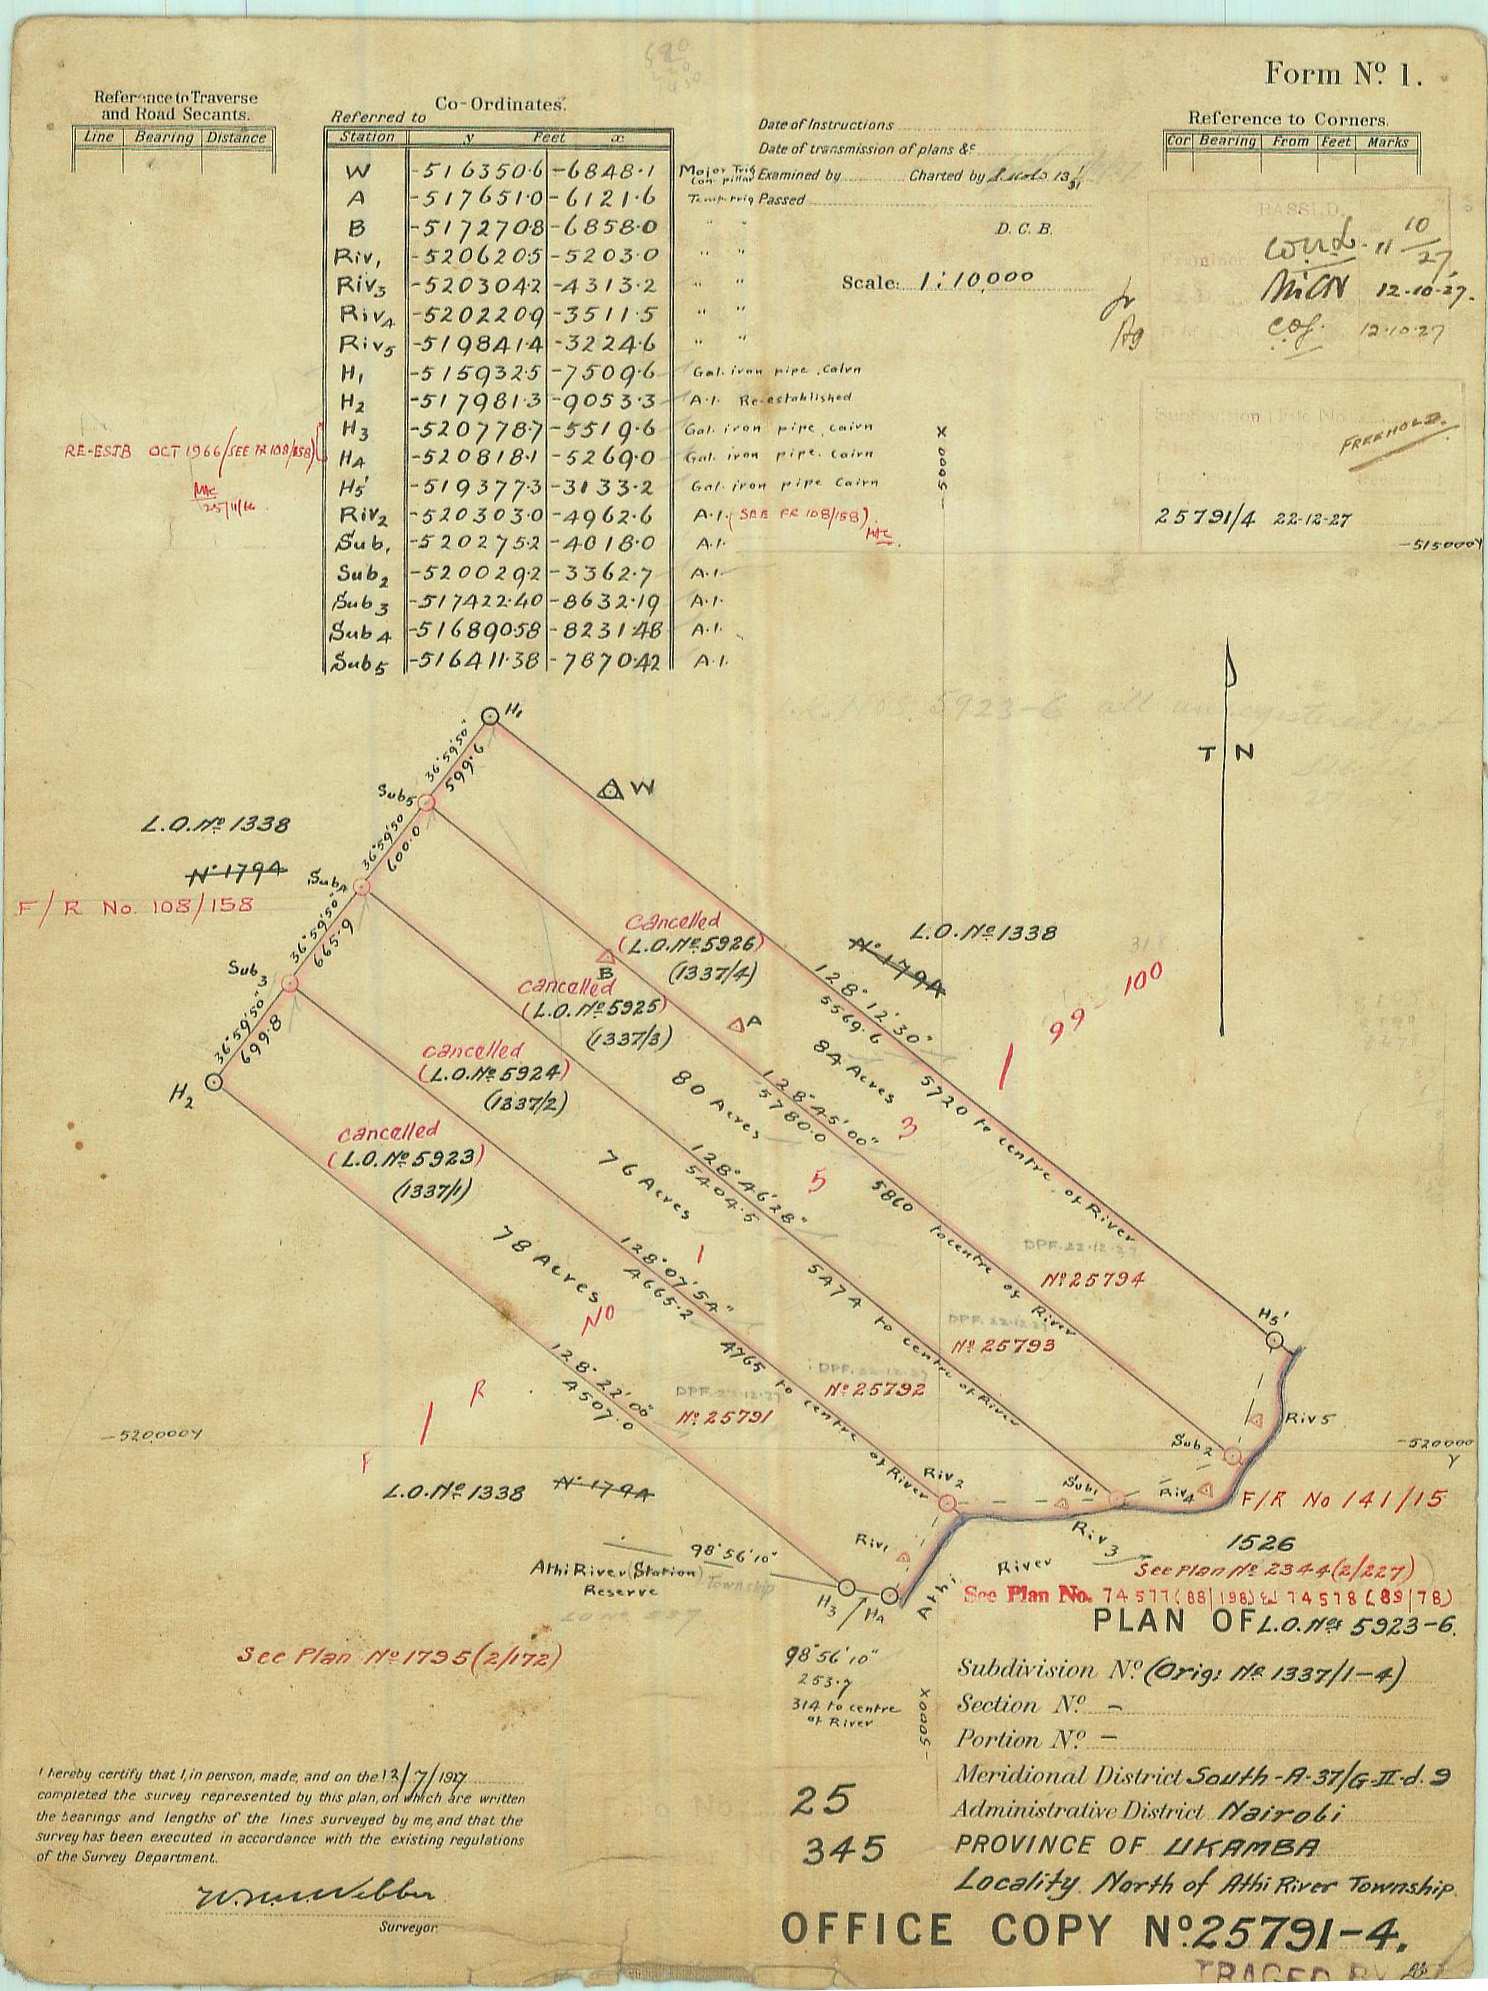 Form Nº 1.
Reference to Traverse
and Road Secants.
Line Bearing Distance
Co-Ordinates.
Referred to
Station y Feet x
W -516350.6 -6848.1 Major Trig Con. pillar
A -517651.0 -6121.6 Temp. Trig
B -517270.8 -6858.0 " "
Riv1 -520620.5 -5203.0 " "
Riv3 -520304.2 -4313.2 " "
Riv4 -520220.9 -3511.5 " "
Riv5 -519841.4 -3224.6 " "
H1 -515932.5 -7509.6 Gal. iron pipe, cairn
H2 -517981.3 -9053.3 A.I. Re-established
H3 -520778.7 -5519.6 Gal. iron pipe, cairn
H4 -520818.1 -5269.0 Gal. iron pipe. Cairn
H5' -519377.3 -3133.2 Gal. iron pipe Cairn
Riv2 -520303.0 -4962.6 A.I. (SEE FR 108/158)
Sub1 -520275.2 -4018.0 A.I.
Sub2 -520029.2 -3362.7 A.I.
Sub3 -517422.40 -8632.19 A.I.
Sub4 -516890.58 -8231.48 A.I.
Sub5 -516411.38 -7870.42 A.I.
RE-ESTB OCT 1966 (SEE FR 108/158)
25/11/66
Date of Instructions
Date of transmission of plans &c
Examined by Charted by
Passed
D. C. B.
Scale: 1:10,000
Reference to Corners.
Cor Bearing From Feet Marks
PASSED
Examiner
11 10/27
12-10-27.
12.10.27
Subdivision File No.
FREEHOLD.
25791/4 22-12-27
-5000 X
-515000 Y
L.O. Nos. 5923-6 all unregistered yet
T N
H1
36°59'50"
599.6
W
Sub5
36°59'50
600.0
L.O. Nº 1338
Nº 179A
Sub4
F/R No. 108/158
36°59'50"
665.9
Sub3
36°59'50"
699.8
H2
Cancelled
(L.O. Nº 5926)
(1337/4)
B
Cancelled
(L.O. Nº 5925)
(1337/3)
A
Cancelled
(L.O. Nº 5924)
(1337/2)
Cancelled
(L.O. Nº 5923)
(1337/1)
L.O. Nº 1338
Nº 179A
99-100
128°12'30"
5569.6
5720 to centre of River
84 Acres
3
128°45'00"
5780.0
5860 to centre of River
80 Acres
5
128°46'28"
5404.5
5474 to centre of River
76 Acres
1
128°07'54"
4665.2
4765 to centre of River
78 Acres
NO
128°22'00"
4507.0
DPF. 22-12-27
Nº 25794
DPF. 22-12-27
Nº 25793
DPF. 22-12-27
Nº 25792
DPF. 22-12-27
Nº 25791
F / R
1
-520000 Y
-520000 Y
L.O. Nº 1338 Nº 179A
H5'
Riv5
Sub2
Riv4
Sub1
Riv3
Riv2
Riv1
Athi River
H3
H4
98°56'10"
Athi River (Station) Township
Reserve
F/R No 141/15
1526
See Plan Nº 2344 (2/227)
See Plan No. 74577 (88/198) & 74578 (89/78)
See Plan Nº 1795 (2/172)
98°56'10"
253.7
314 to centre
of River
-5000 X
PLAN OF L.O. Nos 5923-6.
Subdivision Nº (Orig: Nº 1337/1-4)
Section Nº –
Portion Nº –
Meridional District South-A-37/G-II-d. 9
Administrative District Nairobi
PROVINCE OF UKAMBA
Locality North of Athi River Township.
25
345
I hereby certify that I, in person, made, and on the 12/7/1927
completed the survey represented by this plan, on which are written
the bearings and lengths of the lines surveyed by me, and that the
survey has been executed in accordance with the existing regulations
of the Survey Department.
Webber
Surveyor
OFFICE COPY Nº. 25791-4.
TRACED BY